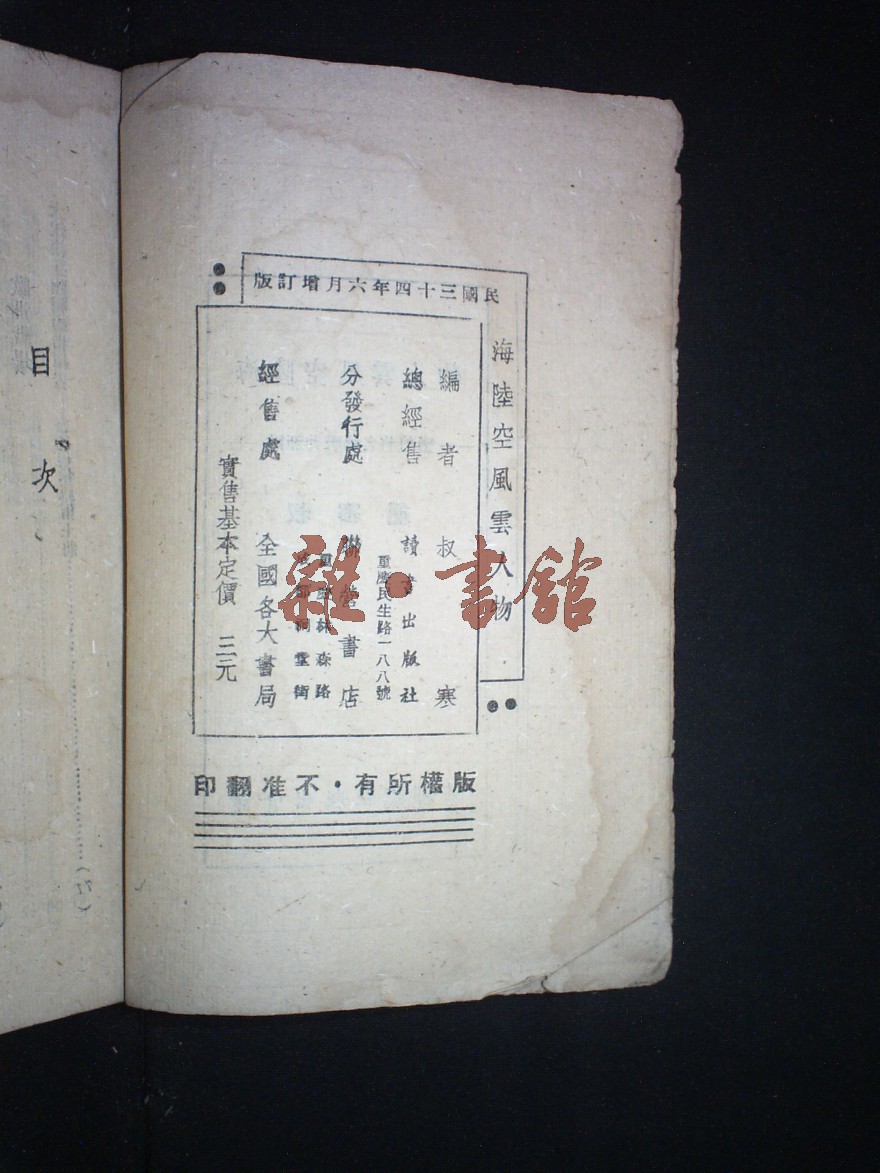 民國三十四年六月增訂版
海陸空風雲人物
編者 叔寒
總經售 讀書出版社
重慶民生路一八八號
分發行處 聯營書店
重慶林森路
成都祠堂街
經售處 全國各大書局
實售基本定價 三元
版權所有·不准翻印
目次
雜·書館